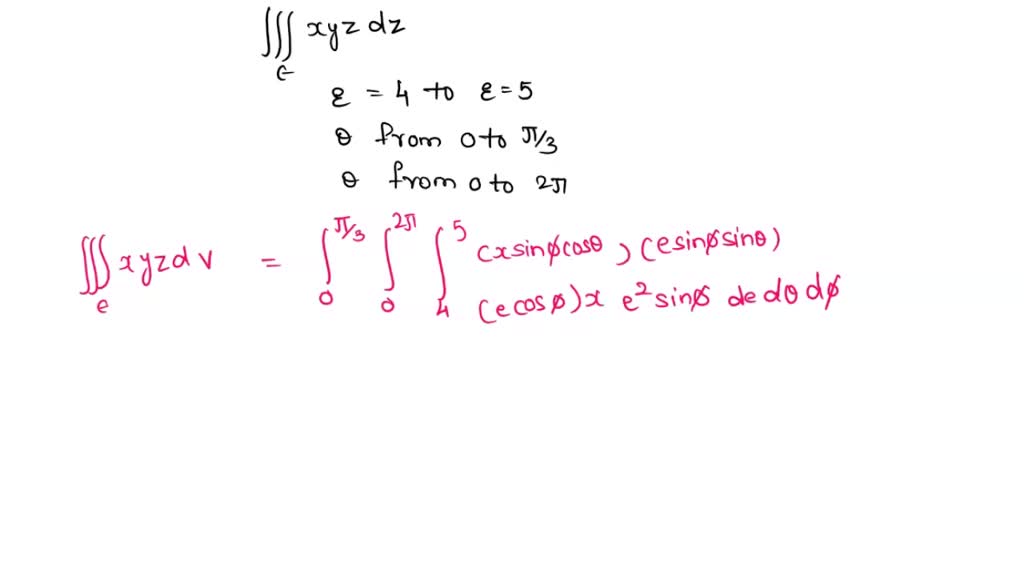 ∭ xyz dz
E
ε = 4 to ε = 5
θ from 0 to π/3
θ from 0 to 2π
∭ xyz dv = ∫ π/3 0 ∫ 2π 0 ∫ 5 4 (x sinφ cosθ) (e sinφ sinθ)
e (e cosφ) x e² sinφ de dθ dφ